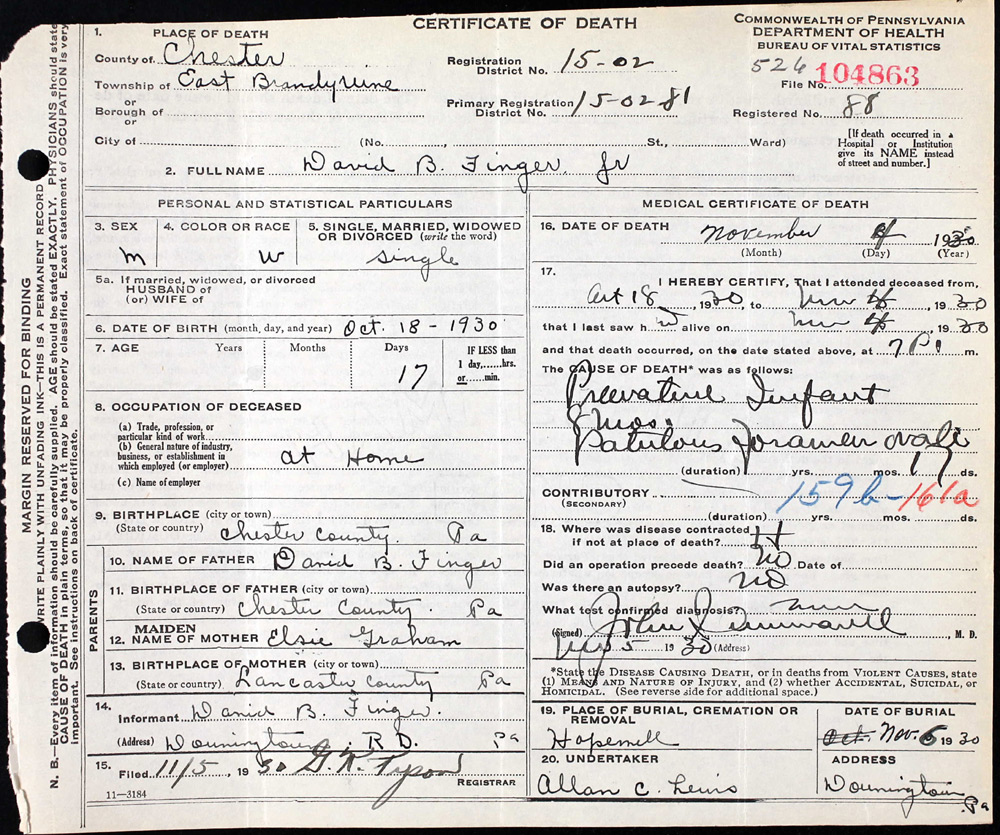 CERTIFICATE OF DEATH
COMMONWEALTH OF PENNSYLVANIA
DEPARTMENT OF HEALTH
BUREAU OF VITAL STATISTICS
1. PLACE OF DEATH
County of Chester
Township of East Brandywine
or
Borough of
or
City of (No. St., Ward)
Registration District No. 15-02
Primary Registration District No. 15-02-81
526
File No. 104863
Registered No. 88
[If death occurred in a
Hospital or Institution
give its NAME instead
of street and number.]
2. FULL NAME David B. Finger Jr
PERSONAL AND STATISTICAL PARTICULARS
3. SEX
m
4. COLOR OR RACE
W
5. SINGLE, MARRIED, WIDOWED
OR DIVORCED (write the word)
single
5a. If married, widowed, or divorced
HUSBAND of
(or) WIFE of
6. DATE OF BIRTH (month, day, and year) Oct. 18 - 1930
7. AGE Years Months Days IF LESS than
1 day,......hrs.
or......min.
17
8. OCCUPATION OF DECEASED
(a) Trade, profession, or
particular kind of work
(b) General nature of industry,
business, or establishment in
which employed (or employer) at Home
(c) Name of employer
9. BIRTHPLACE (city or town)
(State or country) Chester County. Pa
PARENTS
10. NAME OF FATHER David B. Finger
11. BIRTHPLACE OF FATHER (city or town)
(State or country) Chester County. Pa
12. MAIDEN NAME OF MOTHER Elsie Graham
13. BIRTHPLACE OF MOTHER (city or town)
(State or country) Lancaster County Pa
14.
Informant David B. Finger.
(Address) Downingtown, R D. Pa
15.
Filed 11/5, 1930 G. K. Tyson
REGISTRAR
11—3184
MEDICAL CERTIFICATE OF DEATH
16. DATE OF DEATH November 4 1930
(Month) (Day) (Year)
17.
I HEREBY CERTIFY, That I attended deceased from,
Oct 18, 1930, to Nov 4, 1930
that I last saw h alive on Nov 4, 1930
and that death occurred, on the date stated above, at 7 P m.
The CAUSE OF DEATH* was as follows:
Premature Infant
8 mos.
Patulous foramen ovale
(duration) yrs. mos. 17 ds.
CONTRIBUTORY
(SECONDARY)
159b-161a
(duration) yrs. mos. ds.
18. Where was disease contracted
if not at place of death?
Did an operation precede death? no Date of
Was there an autopsy? no
What test confirmed diagnosis?
(Signed) John M. D.
Nov 5 1930 (Address)
*State the DISEASE CAUSING DEATH, or in deaths from VIOLENT CAUSES, state
(1) MEANS AND NATURE OF INJURY, and (2) whether ACCIDENTAL, SUICIDAL, or
HOMICIDAL. (See reverse side for additional space.)
19. PLACE OF BURIAL, CREMATION OR
REMOVAL
Hopewell
DATE OF BURIAL
Oct. Nov. 6 1930
20. UNDERTAKER
Allan C. Lewis
ADDRESS
Downingtown Pa
MARGIN RESERVED FOR BINDING
WRITE PLAINLY WITH UNFADING INK—THIS IS A PERMANENT RECORD
N. B.—Every item of information should be carefully supplied. AGE should be stated EXACTLY. PHYSICIANS should state
CAUSE OF DEATH in plain terms, so that it may be properly classified. Exact statement of OCCUPATION is very
important. See instructions on back of certificate.